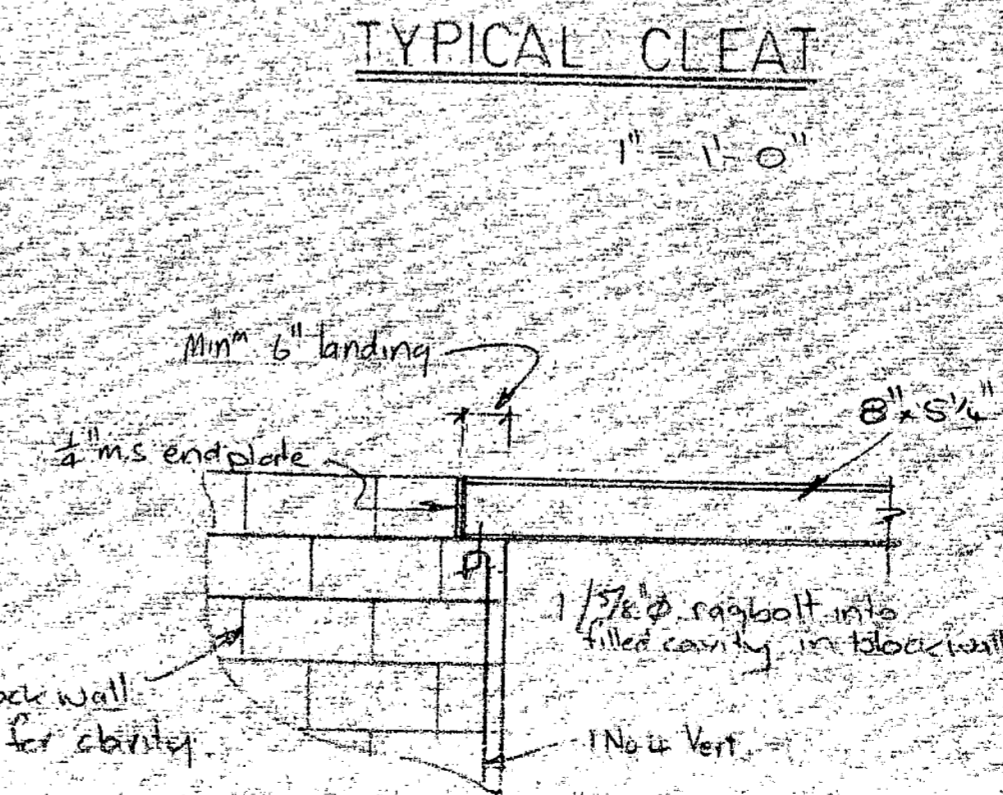 TYPICAL CLEAT
1" = 1'- 0"
Minᵐ 6" landing
8" x 5 1/4"
1/4" m.s endplate
1/5/8" Ø ragbolt into
filled cavity in block wall
wall
for clarity.
1 No 4 Vert.